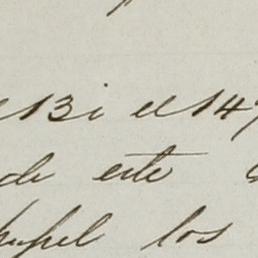 el 13 i el 14
de este
papel los